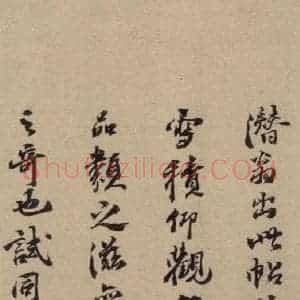 潜翁出此帖
雪積仰觀
品類之滋
之奇也試同
Shufaziliao.com